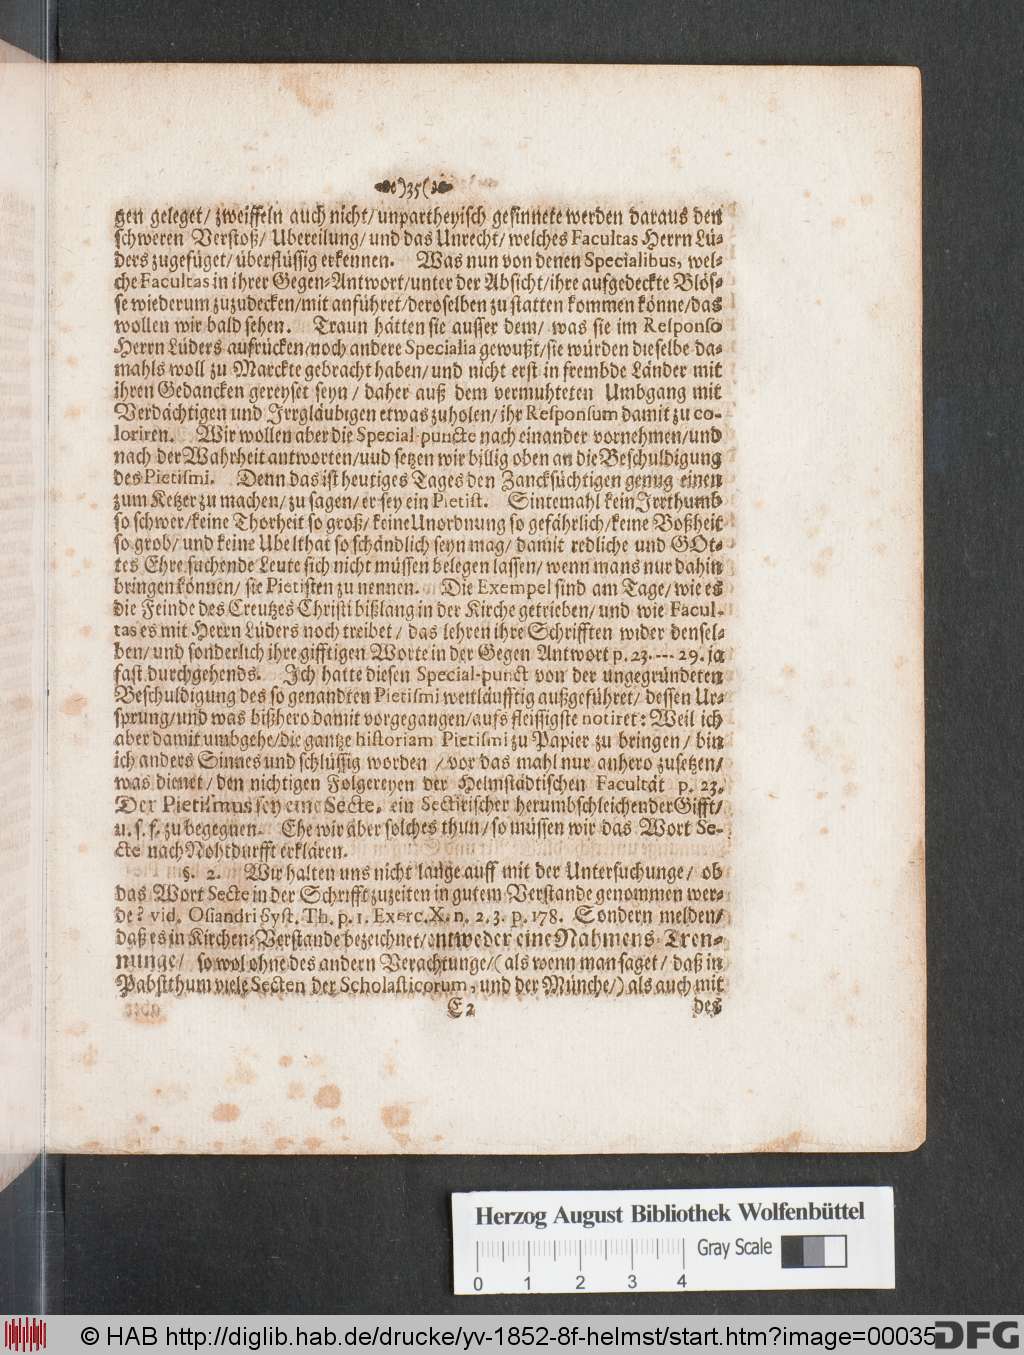 )35(
gen geleget/ zweiffeln auch nicht/ unpartheyisch gesinnete werden daraus den
schweren Verstoß/ Ubereilung/ und das Unrecht/ welches Facultas Herrn Lü-
ders zugefüget/ überflüssig erkennen. Was nun von denen Specialibus, wel-
che Facultas in ihrer Gegen-Antwort/ unter der Absicht/ ihre aufgedeckte Blös-
se wiederum zuzudecken/ mit anführet/ deroselben zu statten kommen könne/ das
wollen wir bald sehen. Traun hätten sie ausser dem/ was sie im Responso
Herrn Lüders aufrücken/ noch andere Specialia gewußt/ sie würden dieselbe da-
mahls woll zu Marckte gebracht haben/ und nicht erst in frembde Länder mit
ihren Gedancken gereyset seyn/ daher auß dem vermuhteten Umbgang mit
Verdächtigen und Irrgläubigen etwas zuholen/ ihr Responsum damit zu co-
loriren. Wir wollen aber die Special-puncte nach einander vornehmen/ und
nach der Wahrheit antworten/ uud setzen wir billig oben an die Beschuldigung
des Pietismi. Denn das ist heutiges Tages den Zancksüchtigen genug einen
zum Ketzer zu machen/ zu sagen/ er sey ein Pietist. Sintemahl kein Irrthumb
so schwer/ keine Thorheit so groß/ keine Unordnung so gefährlich/ keine Boßheit
so grob/ und keine Ubelthat so schändlich seyn mag/ damit redliche und GOt-
tes Ehre suchende Leute sich nicht müssen belegen lassen/ wenn mans nur dahin
bringen können/ sie Pietisten zu nennen. Die Exempel sind am Tage/ wie es
die Feinde des Creutzes Christi bißlang in der Kirche getrieben/ und wie Facul-
tas es mit Herrn Lüders noch treibet/ das lehren ihre Schrifften wider densel-
ben/ und sonderlich ihre gifftigen Worte in der Gegen Antwort p. 23. --- 29. ja
fast durchgehends. Ich hatte diesen Special-punct von der ungegründeten
Beschuldigung des so genandten Pietismi weitläufftig außgeführet/ dessen Ur-
sprung/ und was bißhero damit vorgegangen/ aufs fleissigste notiret: Weil ich
aber damit umbgehe/ die gantze historiam Pietismi zu Papier zu bringen/ bin
ich anders Sinnes und schlüssig worden/ vor das mahl nur anhero zusetzen/
was dienet/ den nichtigen Folgereyen der Helmstädtischen Facultät p. 23.
Der Pietismus sey eine Secte, ein Sectirischer herumbschleichender Gifft/
u. s. f. zu begegnen. Ehe wir aber solches thun/ so müssen wir das Wort Se-
cte nach Nohtdurfft erklären.
§. 2. Wir halten uns nicht lange auff mit der Untersuchunge/ ob
das Wort Secte in der Schrifft zuzeiten in gutem Verstande genommen wer-
de? vid. Osiandri Syst. Th. p. 1. Exerc. X. n. 2. 3. p. 178. Sondern melden/
daß es in Kirchen-Verstande bezeichnet/ entweder eine Nahmens-Tren-
nunge/ so wol ohne des andern Verachtunge/ (als wenn man saget/ daß in
Pabstthum viele Secten der Scholasticorum, und der Münche/) als auch mit
E 2 des
Herzog August Bibliothek Wolfenbüttel
Gray Scale
0 1 2 3 4
© HAB http://diglib.hab.de/drucke/yv-1852-8f-helmst/start.htm?image=00035
DFG